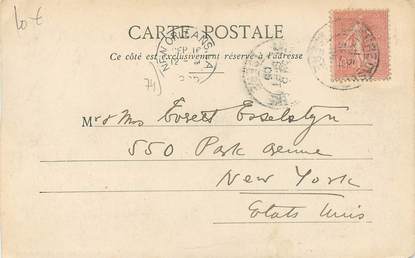 CARTE POSTALE
Ce côté est exclusivement réservé à l'adresse
NEW ORLEANS, LA.
SEP 16
Mr & Mrs Everett Esselstyn
550 Park Avenue
New York
Etats Unis